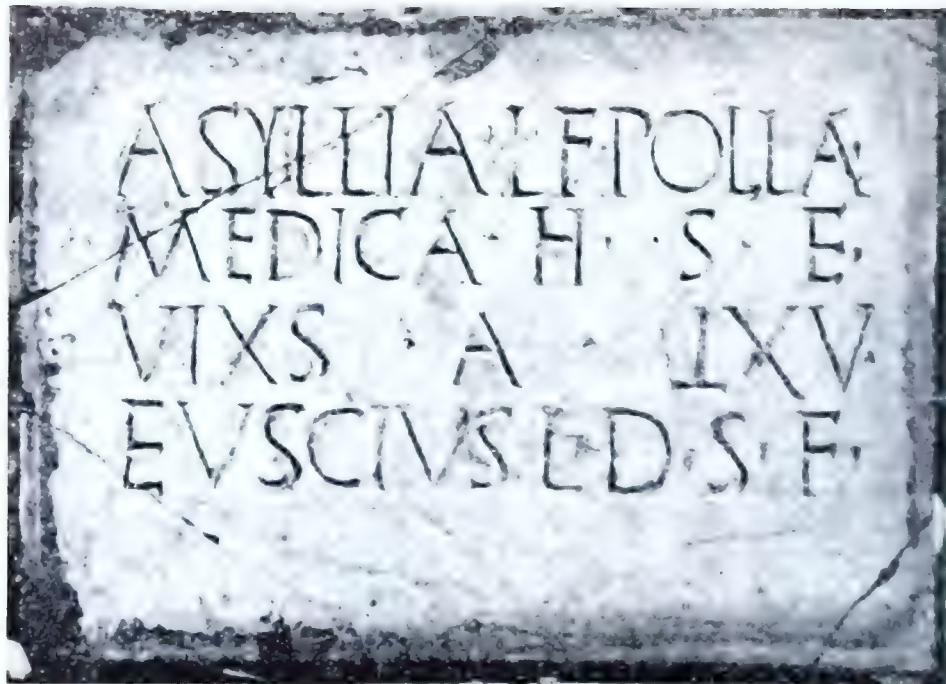 ASYLLIA·L·F·POLLA·
MEDICA·H·S·E·
VIXS·A·LXV·
EVSCIVS·L·D·S·F·